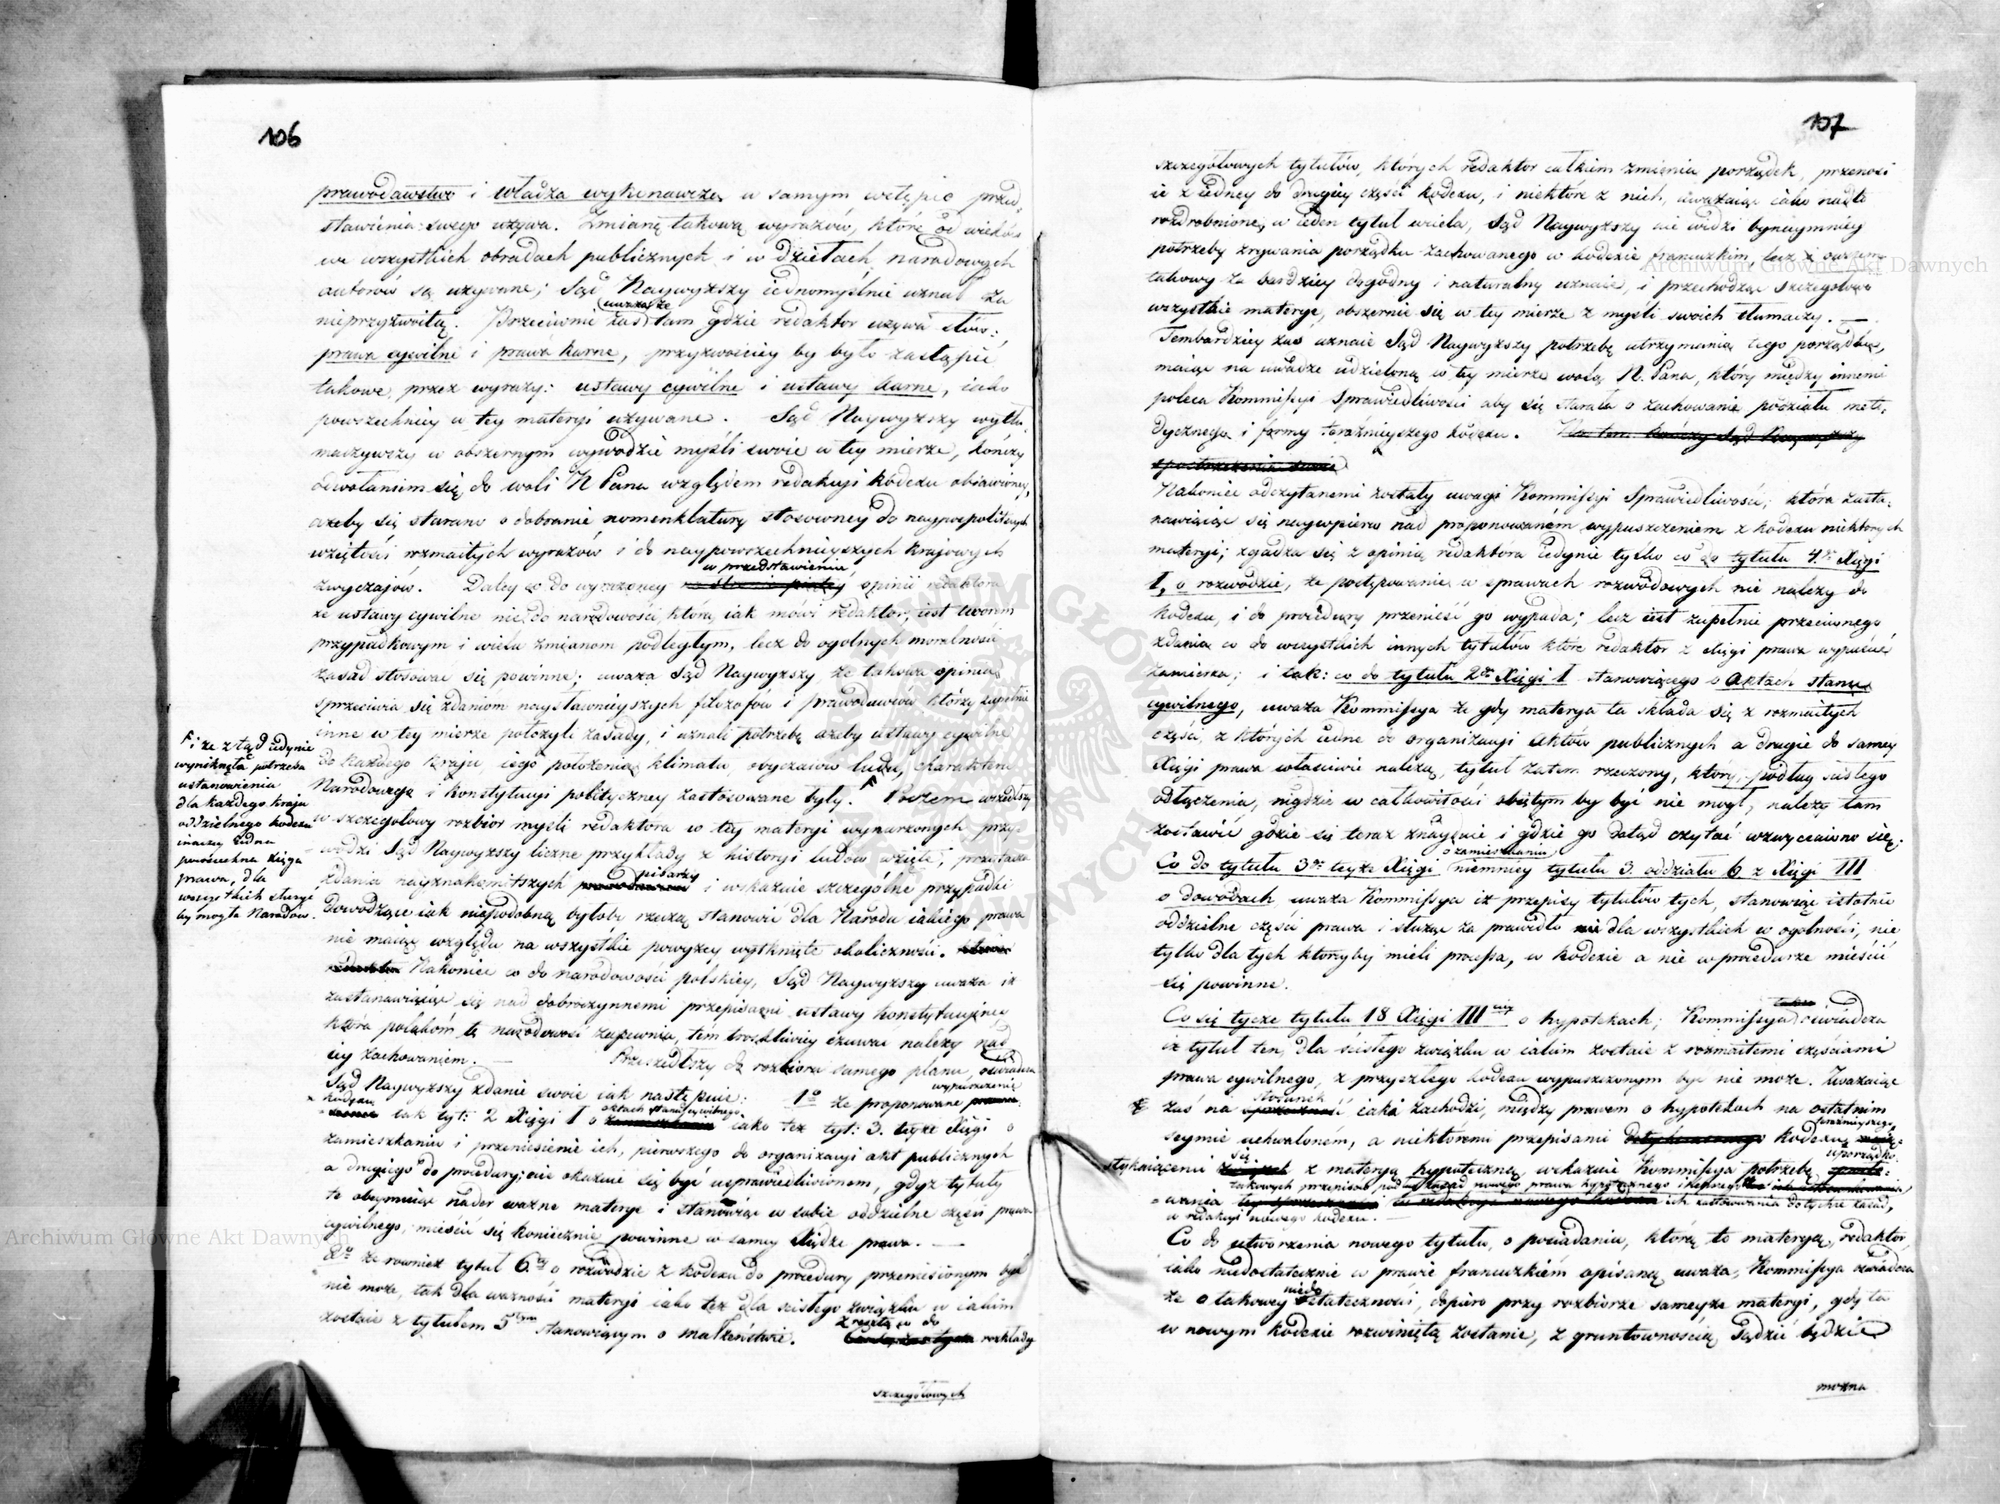 106
prawodawstwo i władza wykonawcza, w samym wstępie przed-
stawienia swego używa. Zmianę takową wyrazów, które od wieków
we wszystkich obradach publicznych i w dziełach narodowych
autorów są używane; Sąd Naywyższy iednomyślnie uznał za
nieprzyzwoitą. Przeciwnie zaś uważa że tam gdzie redaktor używa słów:
prawa cywilne i prawa karne, przyzwoiciey by było zastąpić
takowe, przez wyrazy: ustawy cywilne i ustawy karne, iako
powszechniey w tey materyi używane. Sąd Naywyższy wytłu-
maczywszy w obszernym wywodzie myśli swoie w tey mierze, kończy
odwołaniem się do woli N Pana względem redakcyi kodexu obiawioney,
ażeby się starano o dobranie nomenklatury stosowney do naypospolitszych
wziętości rozmaitych wyrazów i do naypowszechnieyszych kraiowych
zwyczaiów. Daley co do wyrzeczoney w przedstawieniu opinii redaktora
że ustawy cywilne nie do narodowości która iak mówi redaktor, iest tworem
przypadkowym i wielu zmianom podległym, lecz do ogolnych moralności
zasad stosować się powinne; uważa Sąd Naywyższy że takowa opinia
sprzeciwia się zdaniom naysławnieyszych filozofów i prawodawców którzy zupełnie
inne w tey mierze położyli zasady, i uznali potrzebę ażeby ustawy cywilne
do każdego kraiu, iego położenia, klimatu, obyczaiów ludu, charakteru
Narodowego i konstytucyi polityczney zastosowane były. F Poczem wszedłszy
F i że ztąd iedynie
wyniknęła potrzeba
ustanowienia
dla każdego kraiu
oddzielnego kodexu
inaczey iedna
powszechna xięga
prawa, dla
wszystkich służyć
by mogła Narodów.
w szczegołowy rozbiór myśli redaktora w tey materyi wynurzonych przy-
wodzi Sąd Naywyższy liczne przykłady z historyi ludów wzięte, przytacza
zdania nayznakomitszych pisarzy i wskazuie szczególne przypadki
Dowodzące iak niepodobną byłoby rzeczą stanowić dla Narodu iakiego prawa
nie maiąc względu na wszystkie powyżey wytknięte okoliczności.
Nakoniec co do narodowości polskiey, Sąd Naywyższy uważa iż
zastanawiaiąc się nad dobroczynnemi przepisami ustawy konstytucyiney
która polaków tę narodowość zapewnia, tem troskliwiey czuwać należy nad
iey zachowaniem. — Przeszedłszy do rozbioru samego planu, oświadcza
Sąd Naywyższy zdanie swoie iak następuie: 1o że proponowane wypuszczenie
z kodexu iak tyt: 2 Xięgi I o aktach stanu cywilnego iako też tyt: 3. teyże Xięgi o
zamieszkaniu i przeniesienie ich, pierwszego do organizacyi akt publicznych
a drugiego do procedury; nie okazuie się być usprawiedliwionem, gdyż tytuły
te obeymuiąc nader ważne materye i stanowiąc w sobie oddzielne części prawa
cywilnego, mieścić się koniecznie powinne w samey xiędze prawa. —
2o że również tytuł 6ty o rozwodzie z kodexu do procedury przeniesionym być
nie może, tak dla ważności materyi iako też dla ścisłego związku w iakim
zostaie z tytułem 5tym stanowiącym o małżeństwie. Zresztą co do rozkłady
szczegółowych
107
szczegółowych tytułów, których redaktor całkiem zmienia porządek, przenosi
ie z iedney do drugiey części kodexu, i niektóre z nich, uważaiąc iako nadto
rozdrobnione, w ieden tytuł wciela, Sąd Naywyższy nie widzi bynaymniey
potrzeby zrywania porządku zachowanego w kodexie francuzkim, lecz i owszem
takowy za bardziey dogodny i naturalny uznaie, i przechodząc szczegółowo
wszystkie materye, obszernie się w tey mierze z myśli swoich tłumaczy. —
Tembardziey zaś uznaie Sąd Naywyższy potrzebę utrzymania tego porządku,
maiąc na uwadze udzieloną w tey mierze wolą N. Pana, który między innemi
poleca Kommissyi Sprawiedliwości aby się starała o zachowanie podziału meto-
dycznego i formy teraźnieyszego kodexu. Na tem kończy Sąd Naywyższy
spostrzeżenia swoie
Nakoniec odczytanemi zostały uwagi Kommissyi Sprawiedliwości, która zasta-
nawiaiąc się naypierw nad proponowanem wypuszczeniem z kodexu niektórych
materyi; zgadza się z opinią redaktora iedynie tylko co do tytułu 4go Xięgi
I, o rozwodzie, że postępowanie w sprawach rozwodowych nie należy do
kodexu, i do procedury przenieść go wypada; lecz iest zupełnie przeciwnego
zdania co do wszystkich innych tytułów które redaktor z xięgi prawa wypuścić
zamierza; i tak: co do tytułu 2go Xięgi I stanowiącego o Aktach stanu
cywilnego, uważa Kommissya że gdy materya ta składa się z rozmaitych
części, z których iedne do organizacyi Aktów publicznych a drugie do samey
Xięgi prawa właściwie należą, tytuł zatem rzeczony, który podług ścisłego
odłączenia, nigdzie w całkowitości obiętym by być nie mogł, należy tam
zostawić gdzie się teraz znayduie i gdzie go dotąd czytać wzwyczaiono się.
Co do tytułu 3go teyże Xięgi o zamieszkaniu niemniey tytułu 3. oddziału 6 z Xięgi III
o dowodach uważa Kommissya iż przepisy tytułów tych, stanowiąc istotnie
oddzielne części prawa i służąc za prawidło nie dla wszystkich w ogolności, nie
tylko dla tych którzyby mieli processa, w kodexie a nie w procedurze mieścić
się powinne.
Co się tycze tytułu 18 Xięgi III o hypotekach; Kommissya także oświadcza
iż tytuł ten, dla ścisłego związku w iakim zostaie z rozmaitemi częściami
prawa cywilnego, z przyszłego kodexu wypuszczonym być nie może. Zważaiąc
zaś na stosunek iaki zachodzi, między prawem o hypotekach na ostatnim
seymie uchwalonem, a niektóremi przepisami kodexu teraźnieyszego,
stykaiącemi się z materyą hypoteczną, wskazuie Kommissya potrzebę uporządko-
wania takowych przepisów podług zasad nowego prawa hypotecznego i ich zastosowania do tychże zasad,
w redakcyi nowego kodexu. —
Co do utworzenia nowego tytułu, o posiadaniu, którą to materyą, redaktor,
iako niedostatecznie w prawie francuzkiem opisaną uważa, Kommissya oświadcza
że o takowey niedostateczności, dopiero przy rozbiorze sameyże materyi, gdy ta
w nowym kodexie rozwiniętą zostanie, z gruntownością sądzić będzie
można
Archiwum Główne Akt Dawnych
Archiwum Główne Akt Dawnych